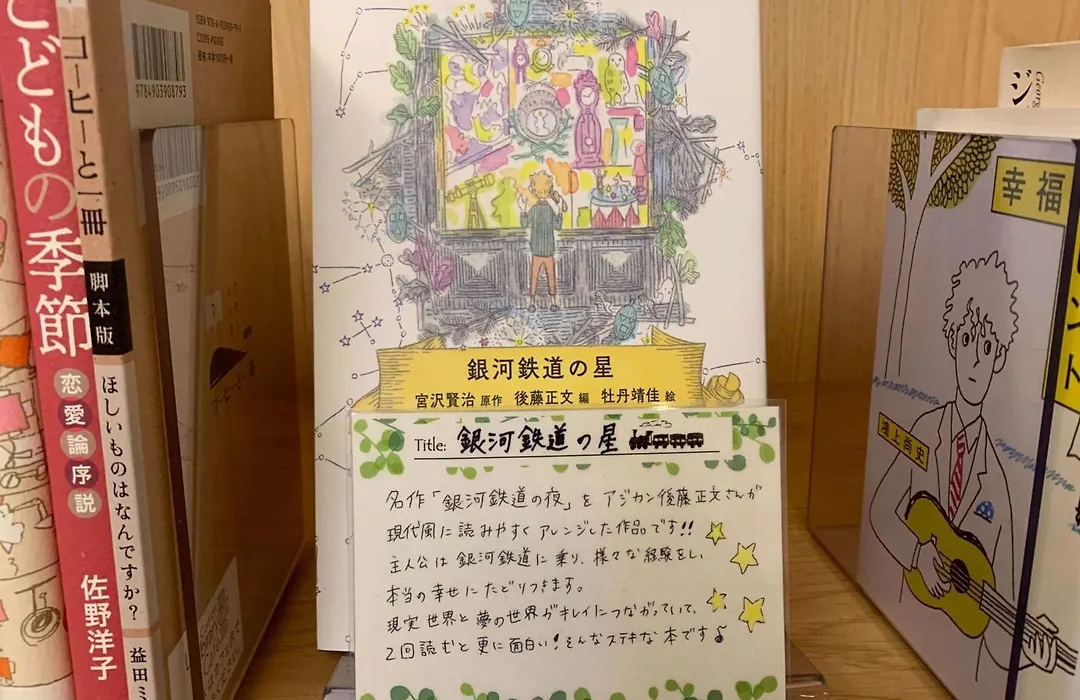 こどもの季節
恋愛論序説
佐野洋子
コーヒーと一冊
脚本版
ほしいものはなんですか?
益田ミ
9784903908793
銀河鉄道の星
宮沢賢治 原作 後藤正文 編 牡丹靖佳 絵
Title: 銀河鉄道の星
名作「銀河鉄道の夜」を アジカン後藤正文さんが
現代風に読みやすく アレンジした作品です!!
主人公は 銀河鉄道に乗り、様々な経験をし
本当の幸せにたどりつきます。
現実世界と夢の世界がキレイにつながっていて、
2回読むと更に面白い!そんなステキな本です♪
幸福
ヒント
鴻上尚史
ジ
Georg